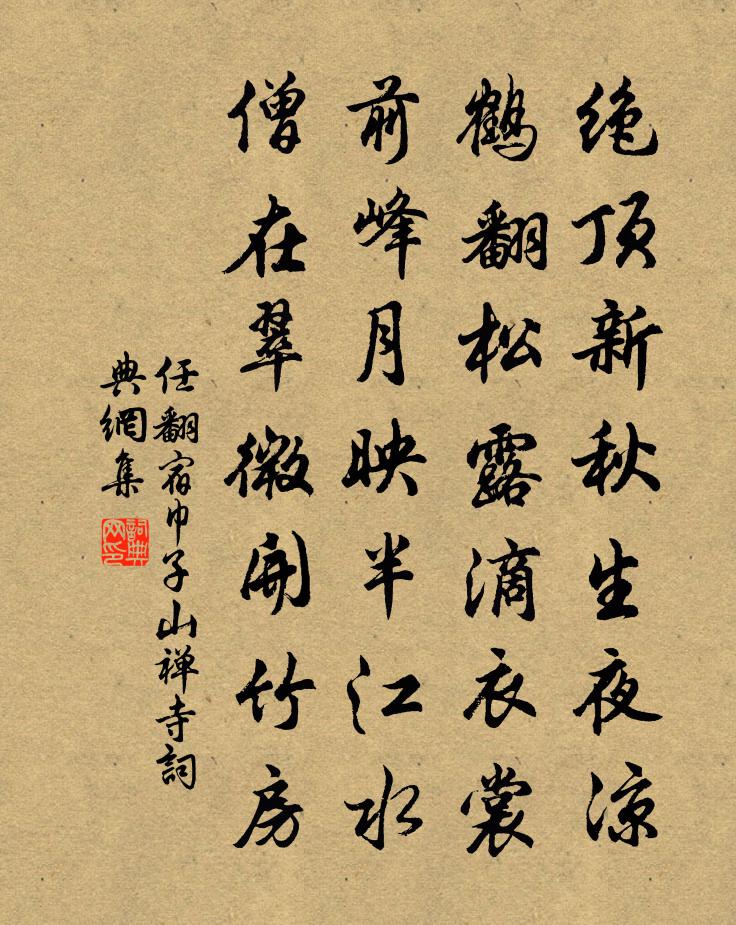 绝顶新秋生夜凉
鹤翻松露滴衣裳
前峰月映半江水
僧在翠微开竹房
任翻宿巾子山禅寺词
典网集
词典网印